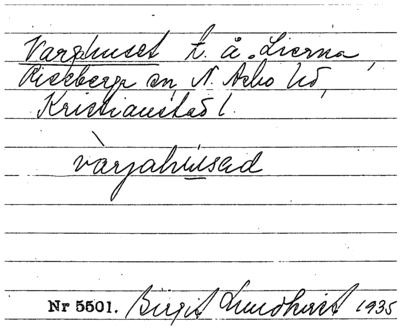 Varghuset t. å. Lierna,
Riseberga sn, N. Åsbo hd,
Kristianstad l.
vàrjahusad
Nr 5501. Birgit Lundqvist 1935